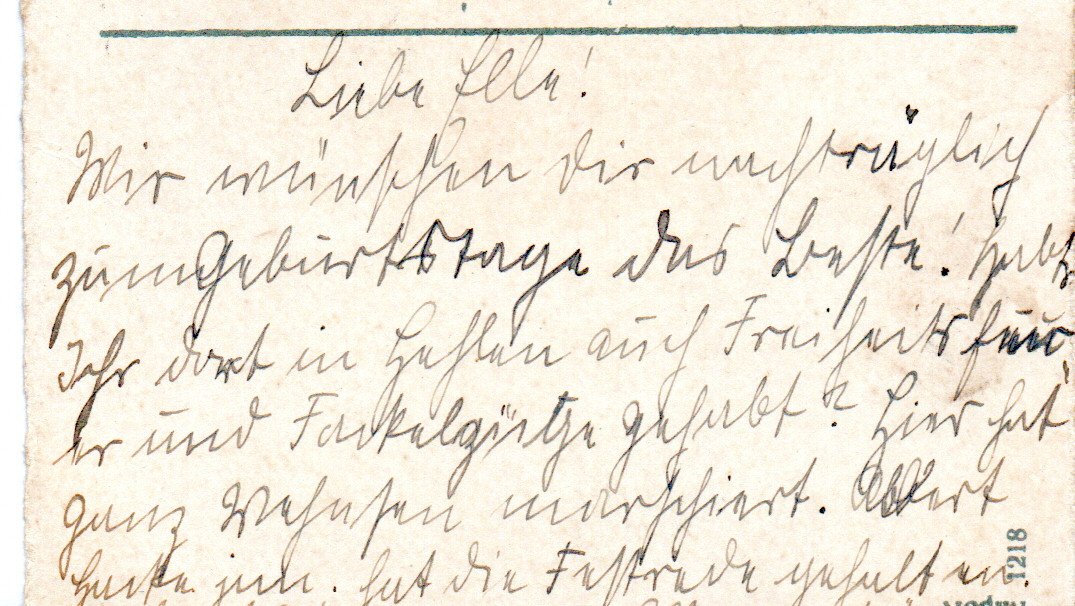 Liebe Elle!
Wir wünschen Dir nachträglich
zum Geburtstage das Beste! Habt
Ihr dort in Hehlen auch Freiheitsfeu¬
er und Fackelzüge gehabt? Hier hat
ganz Wehnsen marschiert. Albert
Hacke jun. hat die Festrede gehalten.
1218